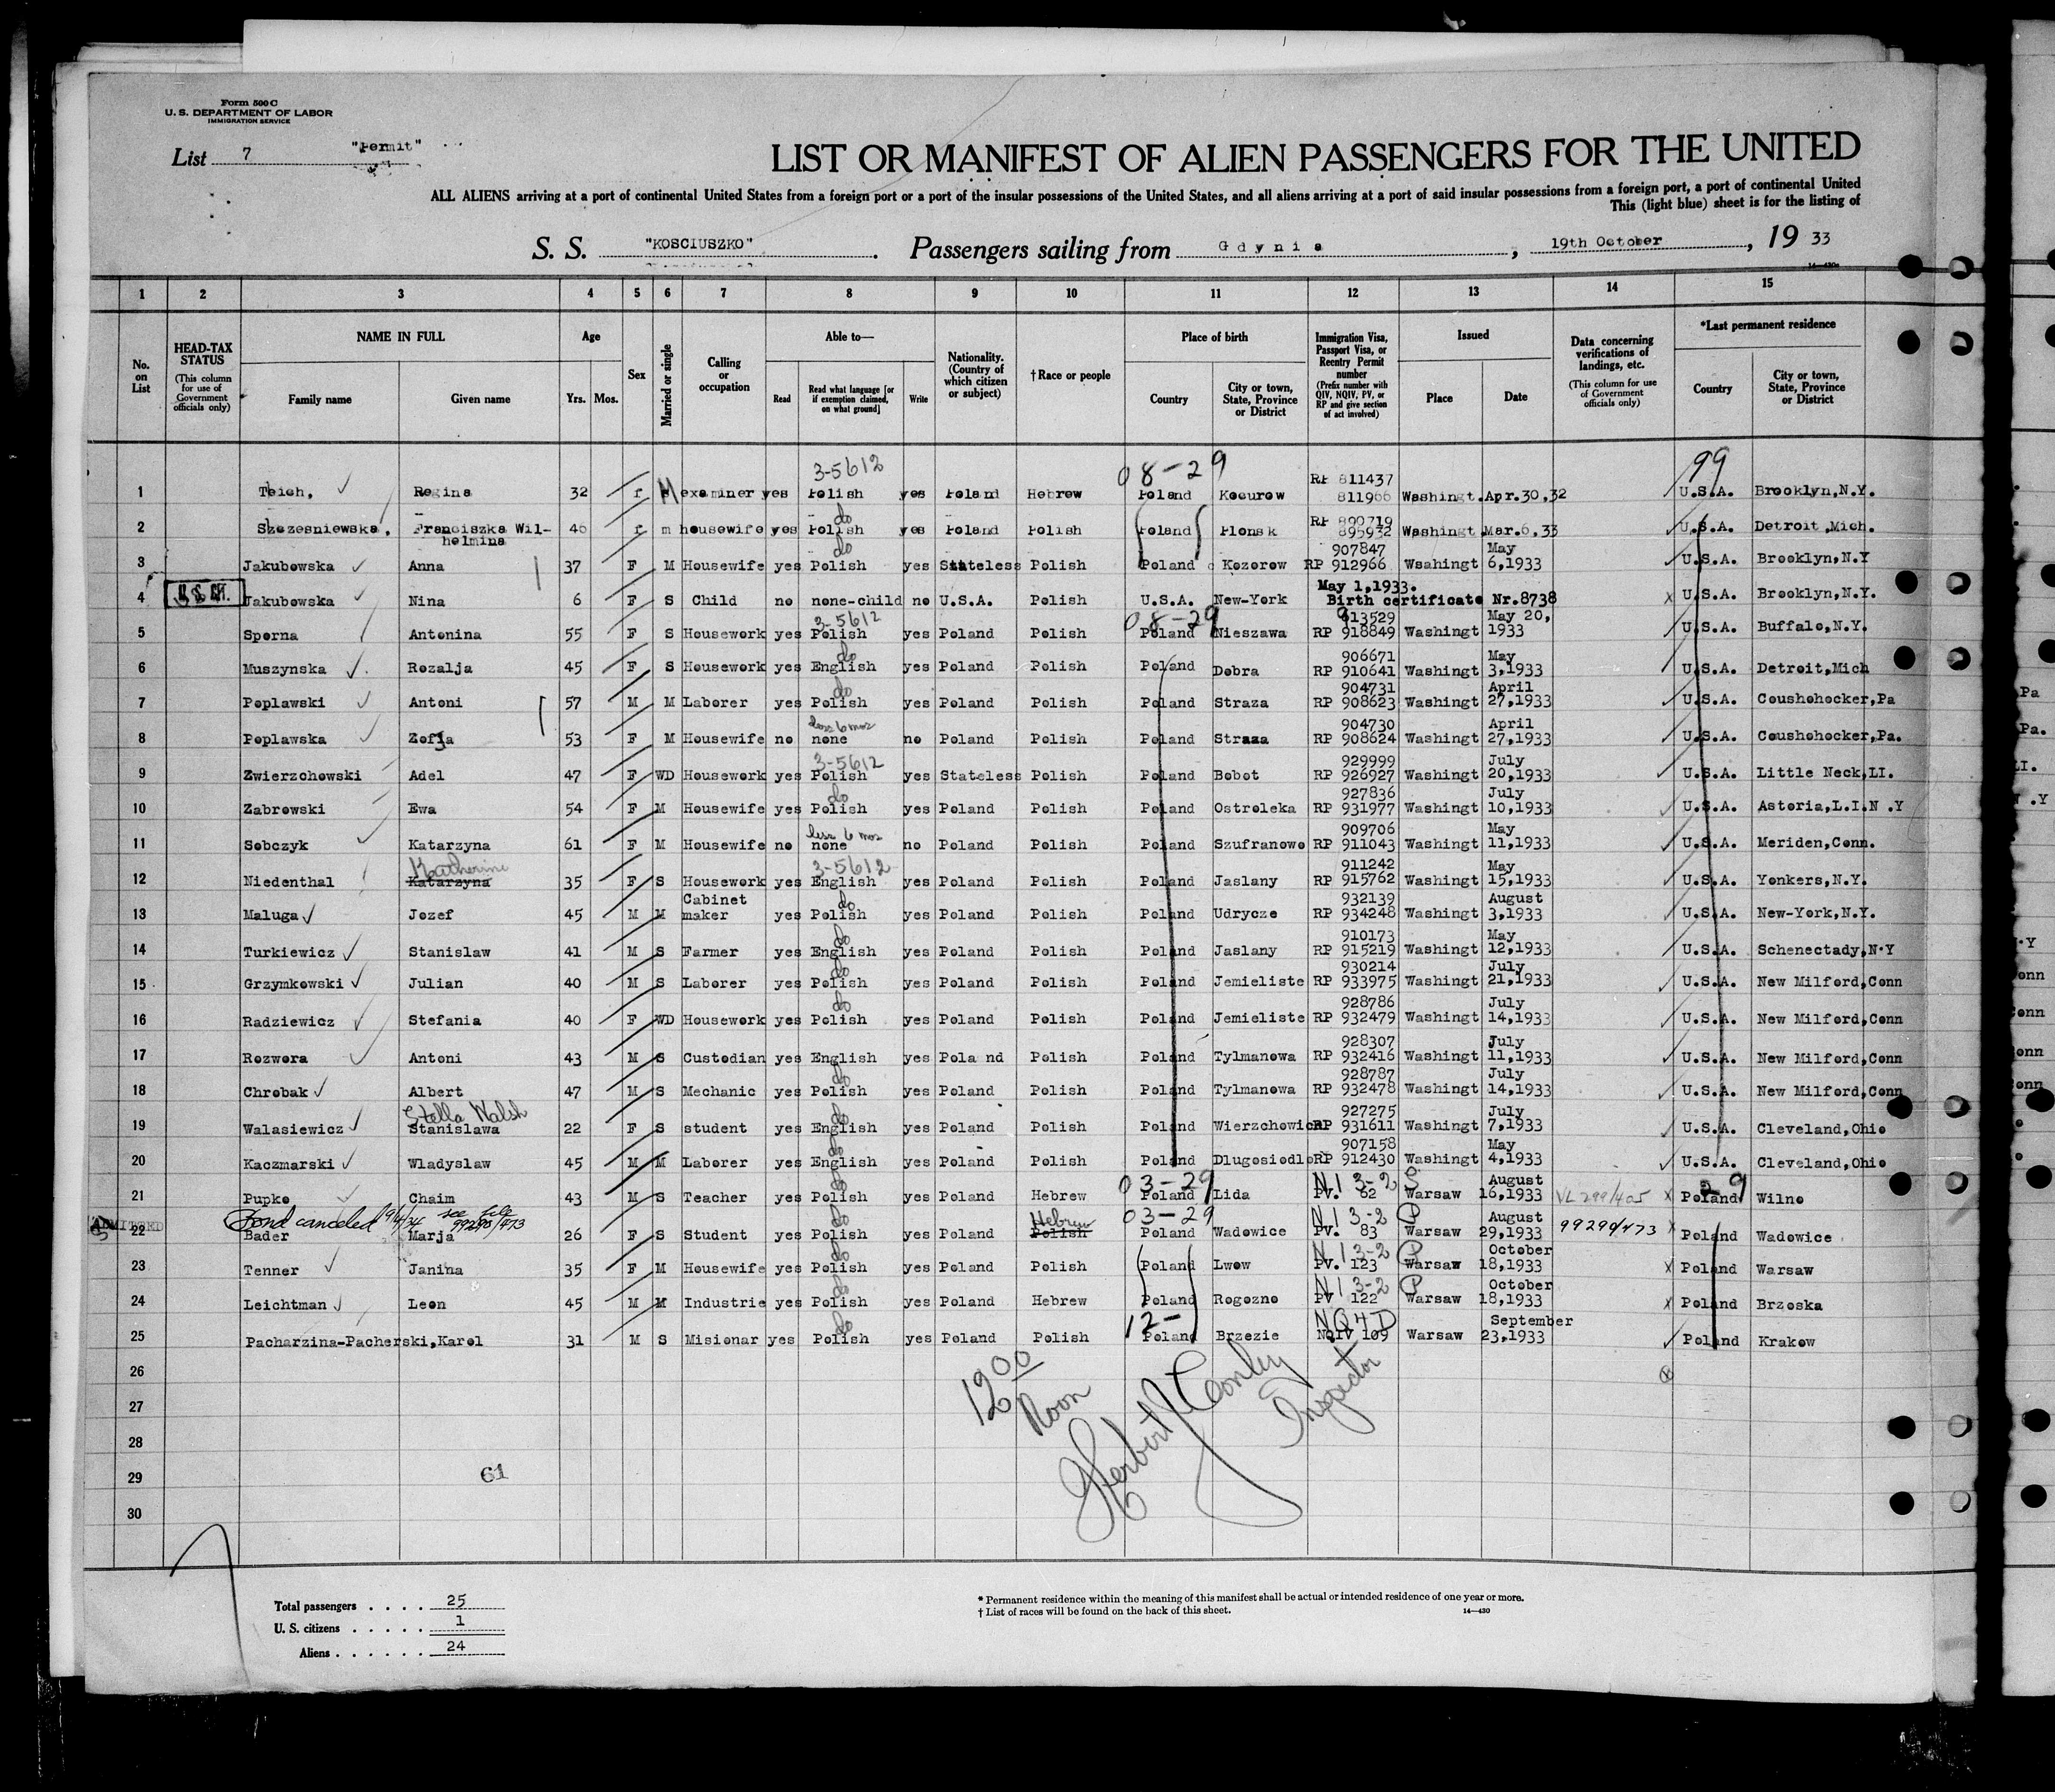 Form 500 C
U. S. DEPARTMENT OF LABOR
IMMIGRATION SERVICE
List 7 "Permit"
LIST OR MANIFEST OF ALIEN PASSENGERS FOR THE UNITED
ALL ALIENS arriving at a port of continental United States from a foreign port or a port of the insular possessions of the United States, and all aliens arriving at a port of said insular possessions from a foreign port, a port of continental United
This (light blue) sheet is for the listing of
S. S. "KOSCIUSZKO". Passengers sailing from Gdynia, 19th October, 19 33
1 2 3 4 5 6 7 8 9 10 11 12 13 14 15
No. on List
HEAD-TAX STATUS (This column for use of Government officials only)
NAME IN FULL Family name Given name
Age Yrs. Mos.
Sex
Married or single
Calling or occupation
Able to— Read Read what language [or if exemption claimed, on what ground] Write
Nationality. (Country of which citizen or subject)
†Race or people
Place of birth Country City or town, State, Province or District
Immigration Visa, Passport Visa, or Reentry Permit number (Prefix number with QIV, NQIV, PV, or RP and give section of act involved)
Issued Place Date
Data concerning verifications of landings, etc. (This column for use of Government officials only)
*Last permanent residence Country City or town, State, Province or District
3-5612 08-29 99
1 Teich, Regina 32 F M examiner yes Polish yes Poland Hebrew Poland Kocurow RP 811437 811966 Washingt. Apr.30,32 U.S.A. Brooklyn,N.Y.
2 Szczesniewska, Franciszka Wilhelmina 46 F m housewife yes do Polish yes Poland Polish Poland Plonsk RP 890719 895932 Washingt Mar.6,33 U.S.A. Detroit,Mich.
3 Jakubowska Anna 37 F M Housewife yes do Polish yes Stateless Polish Poland Kozorow 907847 RP 912966 Wsahingt May 6,1933 U.S.A. Brooklyn,N.Y
4 Jakubowska Nina 6 F S Child no none-child no U.S.A. Polish U.S.A. New-York May 1,1933. Birth certificate Nr.8738 U.S.A. Brooklyn,N.Y.
3-5612 08-29
5 Sperna Antonina 55 F S Housework yes Polish yes Poland Polish Poland Nieszawa 913529 RP 918849 Washingt May 20, 1933 U.S.A. Buffalo,N.Y.
6 Muszynska Rozalja 45 F S Housework yes do English yes Poland Polish Poland Dobra 906671 RP 910641 Washingt May 3,1933 U.S.A. Detroit,Mich
7 Poplawski Antoni 57 M M Laborer yes do Polish yes Poland Polish Poland Straza 904731 RP 908623 Washingt April 27,1933 U.S.A. Coushohocker,Pa
8 Poplawska Zofja 53 F M Housewife no less 6 mos none no Poland Polish Poland Straza 904730 RP 908624 Washingt April 27,1933 U.S.A. Coushohocker,Pa.
9 Zwierzchowski Adel 47 F WD Housework yes 3-5612 Polish yes Stateless Polish Poland Bobot 929999 RP 926927 Washingt July 20,1933 U.S.A. Little Neck,LI.
10 Zabrowski Ewa 54 F M Housewife yes do Polish yes Poland Polish Poland Ostroleka 927836 RP 931977 Washingt July 10,1933 U.S.A. Astoria,L.I.N .Y
11 Sobczyk Katarzyna 61 F M Housewife no less 6 mos none no Poland Polish Poland Szufranowo 909706 RP 911043 Washingt May 11,1933 U.S.A. Meriden,Conn.
12 Niedenthal Katherine Katarzyna 35 F S Housework yes 3-5612 English yes Poland Polish Poland Jaslany 911242 RP 915762 Washingt May 15,1933 U.S.A. Yonkers,N.Y.
13 Maluga Jozef 45 M M Cabinet maker yes do Polish yes Poland Polish Poland Udrycze 932139 RP 934248 Washingt August 3,1933 U.S.A. New-York,N.Y.
14 Turkiewicz Stanislaw 41 M S Farmer yes do English yes Poland Polish Poland Jaslany 910173 RP 915219 Washingt May 12,1933 U.S.A. Schenectady,N.Y
15 Grzymkowski Julian 40 M S Laborer yes do Polish yes Poland Polish Poland Jemieliste 930214 RP 933975 Washingt July 21,1933 U.S.A. New Milford,Conn
16 Radziewicz Stefania 40 F WD Housework yes do Polish yes Poland Polish Poland Jemieliste 928786 RP 932479 Washingt July 14,1933 U.S.A. New Milford,Conn
17 Rozwora Antoni 43 M S Custodian yes English yes Pola nd Polish Poland Tylmanowa 928307 RP 932416 Washingt July 11,1933 U.S.A. New Milford,Conn
18 Chrobak Albert 47 M S Mechanic yes do Polish yes Poland Polish Poland Tylmanowa 928787 RP 932478 Washingt July 14,1933 U.S.A. New Milford,Conn
19 Walasiewicz Stella Walsh Stanislawa 22 F S student yes do English yes Poland Polish Poland Wierzchowica RP 927275 931611 Washingt July 7,1933 U.S.A. Cleveland,Ohio
20 Kaczmarski Wladyslaw 45 M M Laborer yes do English yes Poland Polish Poland Dlugosiodlo 907158 RP 912430 Washingt May 4,1933 U.S.A. Cleveland,Ohio
21 Pupko Chaim 43 M S Teacher yes do Polish yes Poland Hebrew 03-29 Poland Lida N I 3-2 S PV. 62 Warsaw August 16,1933 VL 299/405 29 Poland Wilno
ADMITTED Bond canceled 9/4/34 see file 99290/473
22 Bader Marja 26 F S Student yes do Polish yes Poland Hebrew Polish 03-29 Poland Wadowice N I 3-2 P PV. 83 Warsaw August 29,1933 99290/473 Poland Wadowice
23 Tenner Janina 35 F M Housewife yes do Polish yes Poland Polish Poland Lwow N I 3-2 P PV. 123 Warsaw October 18,1933 Poland Warsaw
24 Leichtman Leon 45 M M Industrie yes do Polish yes Poland Hebrew Poland Rogozno N I 3-2 P PV 122 Warsaw October 18,1933 Poland Brzoska
25 Pacharzina-Pacherski,Karol 31 M S Misionar yes do Polish yes Poland Polish 12- Poland Brzezie NQ4D NQIV 109 Warsaw September 23,1933 Poland Krakow
26
27
28
29
30
12 00 Noon
Herbert J Conley
Inspector
61
Total passengers . . . . 25
U. S. citizens . . . . . 1
Aliens . . . . . . 24
* Permanent residence within the meaning of this manifest shall be actual or intended residence of one year or more.
† List of races will be found on the back of this sheet.
14—430